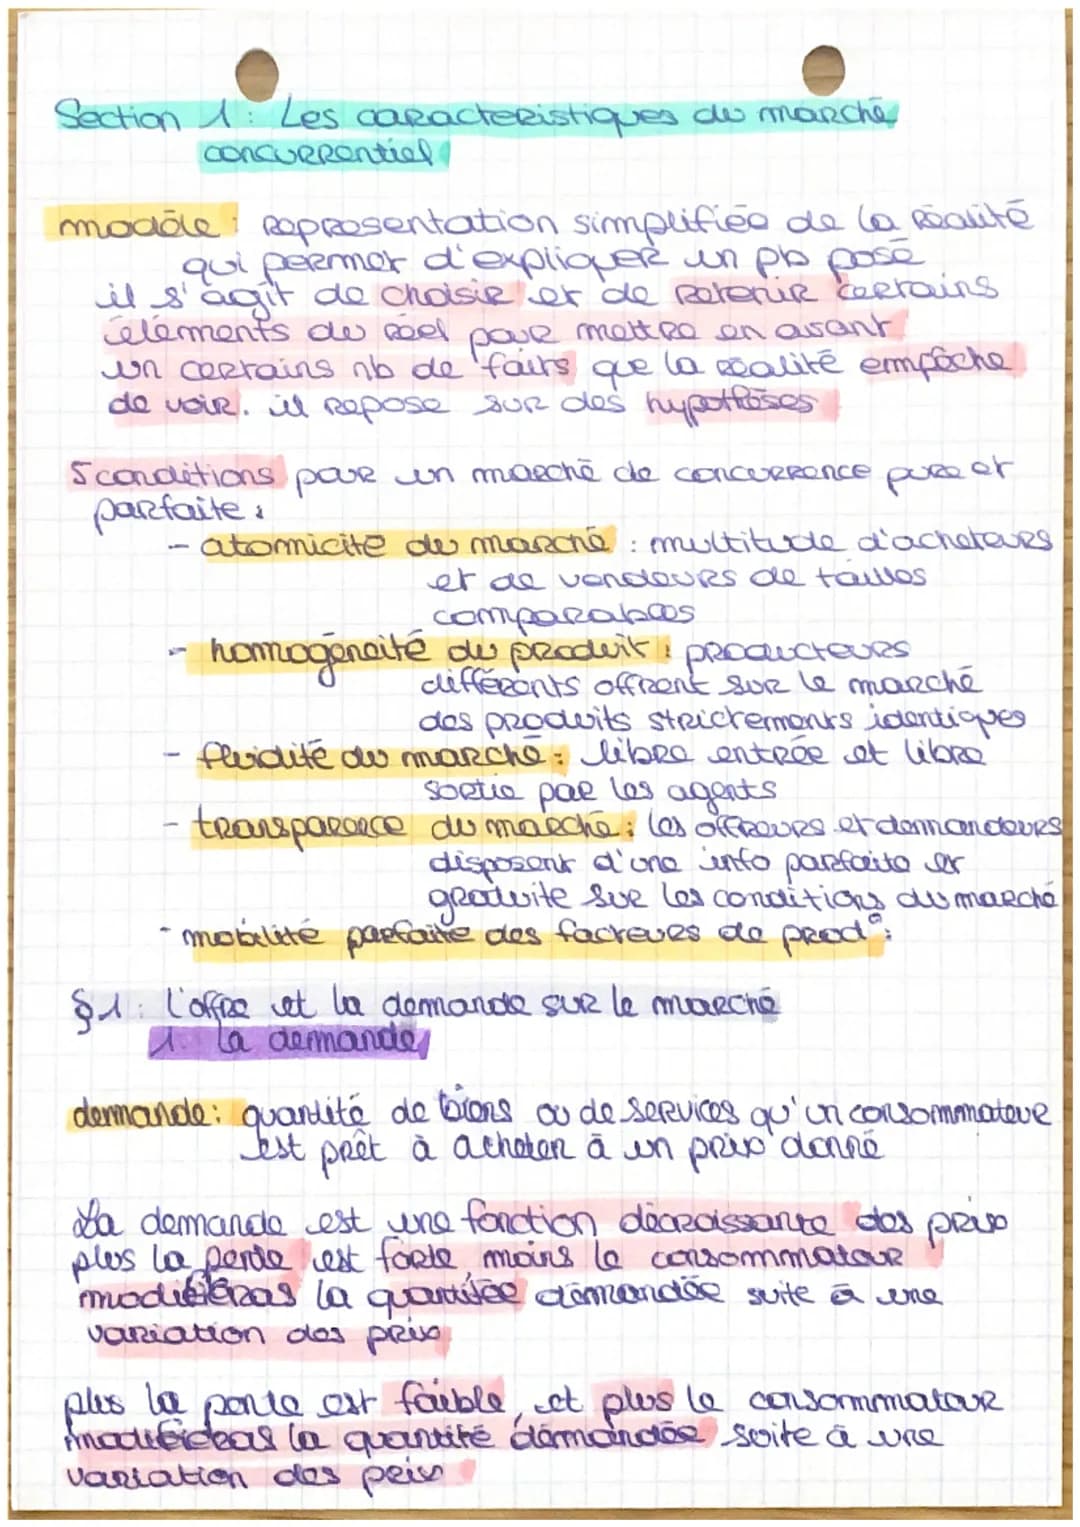 Section 1 : Les caracteristiques du marché
concurrentiel
modèle : représentation simplifiée de la réalité
qui permet d'expliquer un pb posé
il s'agit de choisir et de retenir certains
éléments du réel pour mettre en avant
un certains nb de faits que la réalité empêche
de voir. il repose sur des hypothèses
5 conditions pour un marché de concurrence pure et
parfaite :
- atomicité du marché : multitude d'acheteurs
et de vendeurs de tailles
comparables
- homogénéité du produit : producteurs
différents offrent sur le marché
des produits strictements identiques
- fluidité du marché : libre entrée et libre
sortie par les agents
- transparence du marché : les offreurs et demandeurs
disposent d'une info parfaite et
gratuite sur les conditions du marché
- mobilité parfaite des facteurs de prod° :
§1 : l'offre et la demande sur le marché
1. la demande
demande : quantité de biens ou de services qu'un consommateur
est prêt à acheter à un prix donné
La demande est une fonction décroissante des prix
plus la pente est forte, moins le consommateur
modifieras la quantitée demandée suite à une
variation des prix
plus la pente est faible, et plus le consommateur
modifideras la quantité demandée suite à une
variation des prix